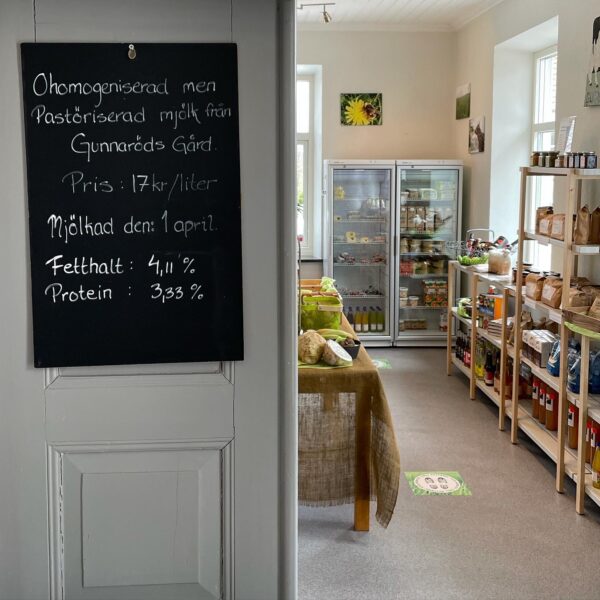 Ohomogeniserad men
Pastöriserad mjölk från
Gunnaröds Gård.
Pris : 17kr/liter
Mjölkad den: 1 april.
Fetthalt : 4,11 %
Protein : 3,33 %